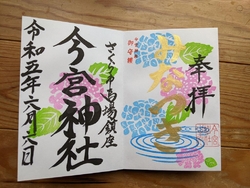 奉拝
みなづき
さくら市馬場鎮座
今宮神社
令和五年六月六日